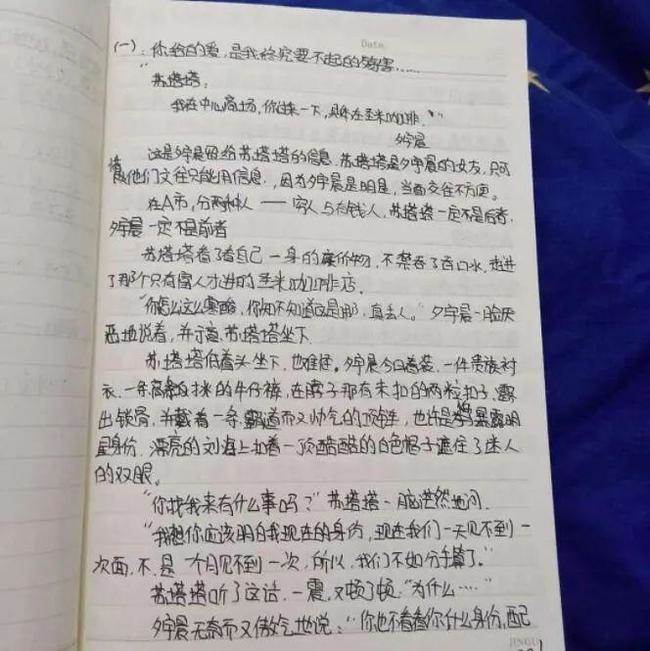 Date
(一)：你给的爱，是我终究要不起的伤害……
“苏塔塔：
我在中心商场，你过来一下，具体在圣米咖啡。”
夕宇晨
这是夕宇晨留给苏塔塔的信息，苏塔塔是夕宇晨的女友，只可
惜他们交往只能用信息，因为夕宇晨是明星，当面交往不方便。
在A市，分两种人——穷人与有钱人，苏塔塔一定不是后者，
夕宇晨一定不是前者
苏塔塔看了看自己一身的廉价物，不禁吞了吞口水，走进
了那个只有富人才进的圣米咖啡店。
“你怎么这么寒酸，你知不知道这是哪，真丢人。”夕宇晨一脸厌
恶地说着，并示意苏塔塔坐下
苏塔塔低着头坐下，也难怪。夕宇晨今日着装，一件贵族衬
衣，一条的牛仔裤，在脖子那有未扣的两粒扣子，露
出锁骨，并戴着一条霸道而又帅气的项链，也许是怕暴露明
星身份，漂亮的刘海上扣着一顶酷酷的白色帽子遮住了迷人
的双眼。
“你找我来有什么事吗？”苏塔塔一脸茫然地问
“我想你应该明白我现在的身份，现在我们一天见不到一
次面，不，是一个月见不到一次，所以，我们不如分手算了。”
苏塔塔听了这话，一震，又顿了顿：“为什么……”
夕宇晨无奈而又傲气地说：“你也不看看你什么身份，配
JINGU